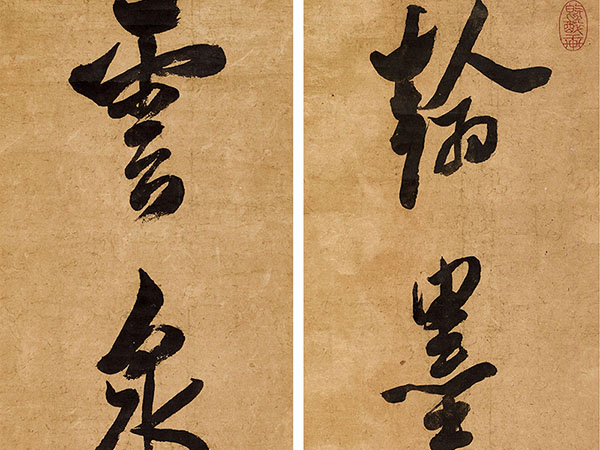 翰墨
雲泉